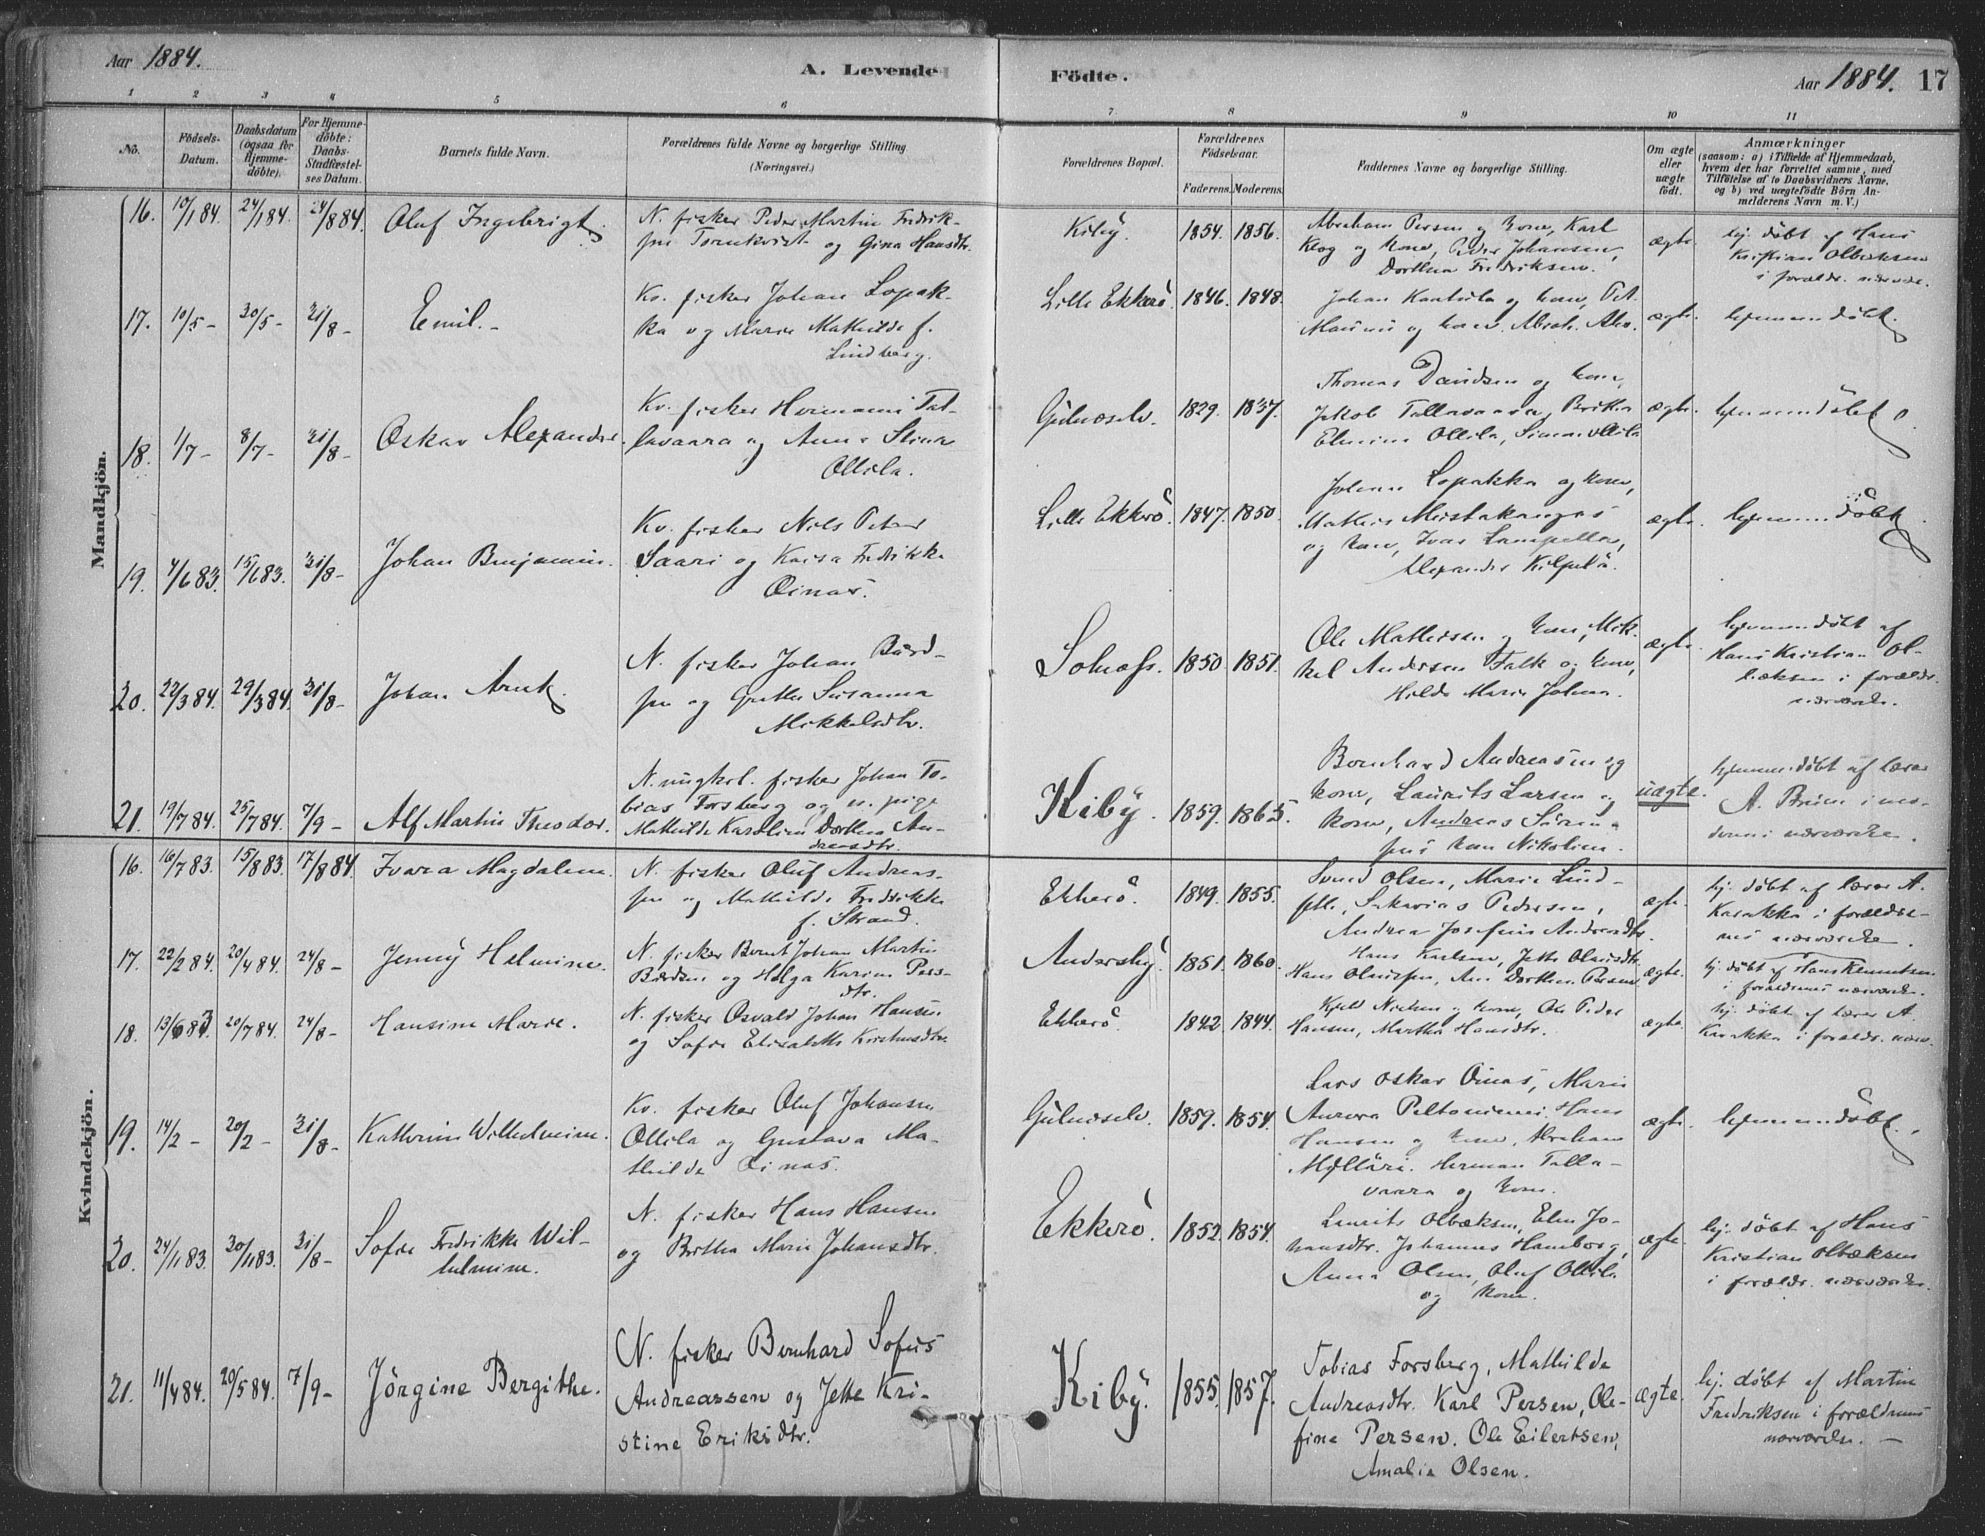 Aar 1884.
A. Levende Födte.
Aar 1884. 17
1 2 3 4 5 6 7 8 9 10 11
No.
Födsels-Datum.
Daabsdatum (ogsaa for Hjemme-döbte).
For Hjemme-döbte: Daabs-Stadfæstel-ses Datum.
Barnets fulde Navn.
Forældrenes fulde Navne og borgerlige Stilling (Næringsvei.)
Forældrenes Bopæl.
Forældrenes Födselsaar.
Faderens. Moderens.
Faddernes Navne og borgerlige Stilling.
Om ægte eller uægte födt.
Anmærkninger
(saasom: a) i Tilfælde af Hjemmedaab,
hvem der har forrettet samme, med
Tilföielse af to Daabsvidners Navne,
og b) ved uægtefödte Börn An-
melderens Navn m. V.)
Mandkjön.
16. 10/1 84. 24/1 84. 24/8 84. Oluf Ingebrigt.
N. fisker Peder Martin Fredrik-
sen Tornkvist og Gina Hansdtr.
Kiby. 1854. 1856.
Abraham Persen og kone, Karl
Krog og kone, Peder Johansen,
Dorthea Fredriksen.
ægte.
hj. döbt af Hans
Kristian Olbæksen
i forældr. nærvær.
17. 10/5 - 30/5 - 31/8 - Emil. -
Kv. fisker Johan Lopak-
ka og Marie Mathilde f.
Lindberg.
Lille Ekkerö. 1846. 1848.
Johan og kone, Pet.
og kone. Abrah.
ægte. hjemmedöbt.
18. 1/7 - 8/7 - 31/8 - Oskar Alexander.
Kv. fisker Hermanni Tal-
lavaara og Anna Stina
Ollila.
Gulnæselv. 1829. 1837.
Thomas Davidsen og kone,
Jakob Tallavaara, Brita
Elmine Ollila, Simon Ollila
ægte. hjemmedöbt.
19. 4/6 83. 15/6 83. 31/8 - Johan Benjamin.
Kv. fisker Nils Peter
Saari og Kaisa Fredrikke
Oinas.
Lille Ekkerö. 1847. 1850.
Johan Lopakka og kone,
Mathis Mustakangas
og kone, Ivar Lampella,
Alexander Kilpelä.
ægte. hjemmedöbt.
20. 22/3 84. 29/3 84. 31/8 - Johan Arnt.
N. fisker Johan Bård-
sen og Grethe Susanna
Mikkelsdtr.
Solnæs. 1850. 1851.
Ole Mathisen og kone, Mik-
kel Andersen Falk og kone,
Hilda Marie Johns.
ægte.
hjemmedöbt af
Hans Kristian Ol-
bæksen i forældr.
nærværelse.
21. 19/7 84. 25/7 84. 7/9 - Alf Martin Theodor.
N. ungkrl. fisker Johan To-
bias Forsberg og n. pige
Mathilde Karoline Dorthea An-
dreasdtr.
Kiby. 1859. 1865.
Bernhard Andreasen og
kone, Laurits Larsen og
kone, Andreas Sören-
sens kone Nikoline.
uægte.
hjemmedöbt af lærer
A. Bruun i mo-
derens nærværelse.
Kvindekjön.
16. 16/7 83. 15/8 83. 17/8 84. Ivara Magdalena.
N. fisker Oluf Andreas-
sen og Mathilde Fredrikke
f. Strand.
Ekkerö. 1849. 1855.
Svend Olsen, Marie Lind-
Sakarias Pedersen,
Andrea Josefine Andreasdtr.
ægte.
hj. döbt af lærer A.
Karakka i forældre-
nes nærværelse.
17. 22/2 84. 20/4 84. 24/8 - Jenny Helmine.
N. fisker Bernt Johan Martin
Bårdsen og Helga Karine Pers-
dtr.
Andersby. 1851. 1860.
Hans Knudsen, Jette Olausdtr.
Hans Olaussen, Ane Dorthea Persen
ægte.
hj. döbt af Hans Knudtsen
i forældrenes nærværelse.
18. 13/6 83. 20/7 84. 24/8 - Hansine Marie.
N. fisker Osvald Johan Hansen
og Sofie Elisabeth Kristensdtr.
Ekkerö. 1842. 1844.
Kjeld Nielsen og kone, Ole Peder
Hansen, Martha Hansdtr.
ægte.
hj. döbt af lærer A.
Karakka i forældr. nærv.
19. 14/2 - 20/2 - 31/8 - Kathrine Wilhelmine.
Kv. fisker Oluf Johansen
Ollila og Gustava Ma-
thilde Oinas.
Gulnæselv. 1859. 1854.
Lars Oskar Oinas, Marie
Aurora Peltoniemi. Hans
Hansen og kone, Abraham
Mylläri. Herman Talla-
vaara og kone.
ægte. hjemmedöbt.
20. 24/11 83. 30/11 83. 31/8 - Sofie Fredrikke Wil-
helmine.
N. fisker Hans Hansen
og Beritha Marie Johansdtr.
Ekkerö. 1852. 1854.
Laurits Olbæksen, Elen Jo-
hansdtr. Johannes Hamborg,
Anna Olsen, Oluf Ollila
og kone.
ægte.
hj. döbt af Hans
Kristian Olbæksen
i forældr. nærværelse.
21. 11/4 84. 20/5 84. 7/9 - Jörgine Bergithe.
N. fisker Bernhard Sofus
Andreassen og Jette Kri-
stine Eriksdtr.
Kiby. 1855. 1857.
Tobias Forsberg, Mathilde
Andreasdtr. Karl Persen, Ole-
fine Persen. Ole Eilertsen,
Amalie Olsen.
ægte.
hj. döbt af Martin
Fredriksen i forældrenes
nærværelse. -